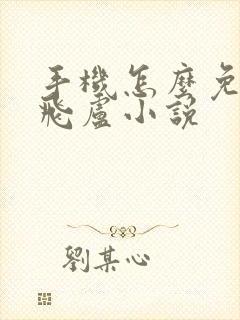 手機怎麼免
飛盧小說
劉某心